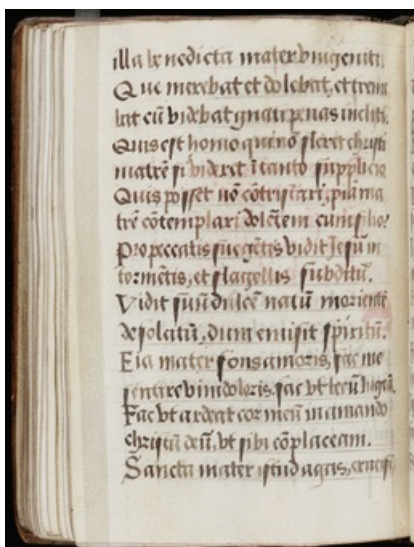 illa benedicta mater vnigeniti.
Que merebat et dolebat, et trem
bat cū videbat gnati penas incliti.
Quis est homo qui nō fleret christi
matrē si videret ī tanto supplicio
Quis posset nō cōtristari, piā ma
trē cōtemplari dolētem cum filio?
Pro peccatis sue gētis vidit Jesū in
tormētis, et flagellis subditū.
Vidit suū dulcē natū morientē
desolatū, dum emisit spiritū.
Eia mater fons amoris, fac me
sentire vim doloris, fac vt tecū lugeā.
Fac vt ardeat cor meū in amando
christū deū, vt sibi cōplaceam.
Sancta mater istud agas, crucifi